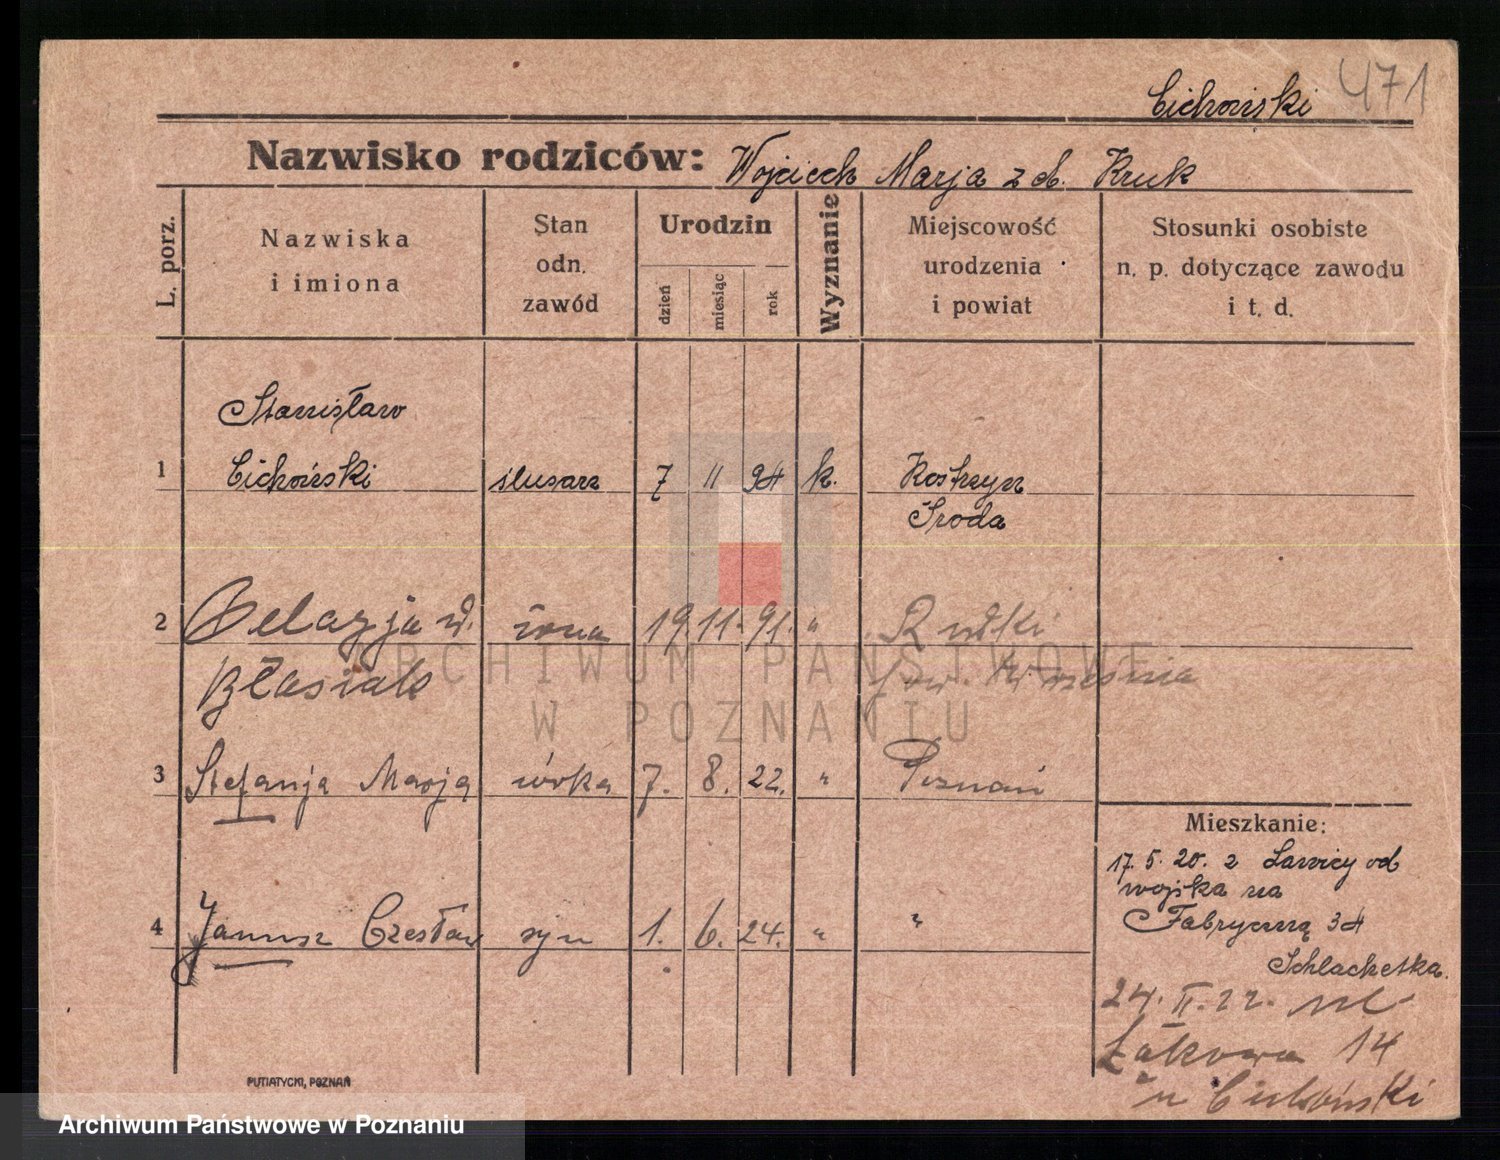 Cichoński 471
Nazwisko rodziców: Wojciech Marja z d. Kruk
L. porz.
Nazwiska
i imiona
Stan
odn.
zawód
Urodzin
dzień
miesiąc
rok
Wyznanie
Miejscowość
urodzenia
i powiat
Stosunki osobiste
n. p. dotyczące zawodu
i t. d.
Stanisław
1 Cichoński ślusarz 7 11 94 k. Kostrzyn
Środa
2 Pelagja d. żona 19. 11. 91. " Rudki
Błasiak pow. Września
3 Stefanja Marja córka 7. 8. 22. " Poznań
4 Janusz Czesław syn 1. 6. 24. " "
Mieszkanie:
17. 5. 20. z Ławicy od
wojska na
Fabryczną 34
Schlachetka.
24. II. 22. ul
Łąkowa 14
u Cichoński
PUTIATYCKI, POZNAŃ
ARCHIWUM PAŃSTWOWE
W POZNANIU
Archiwum Państwowe w Poznaniu